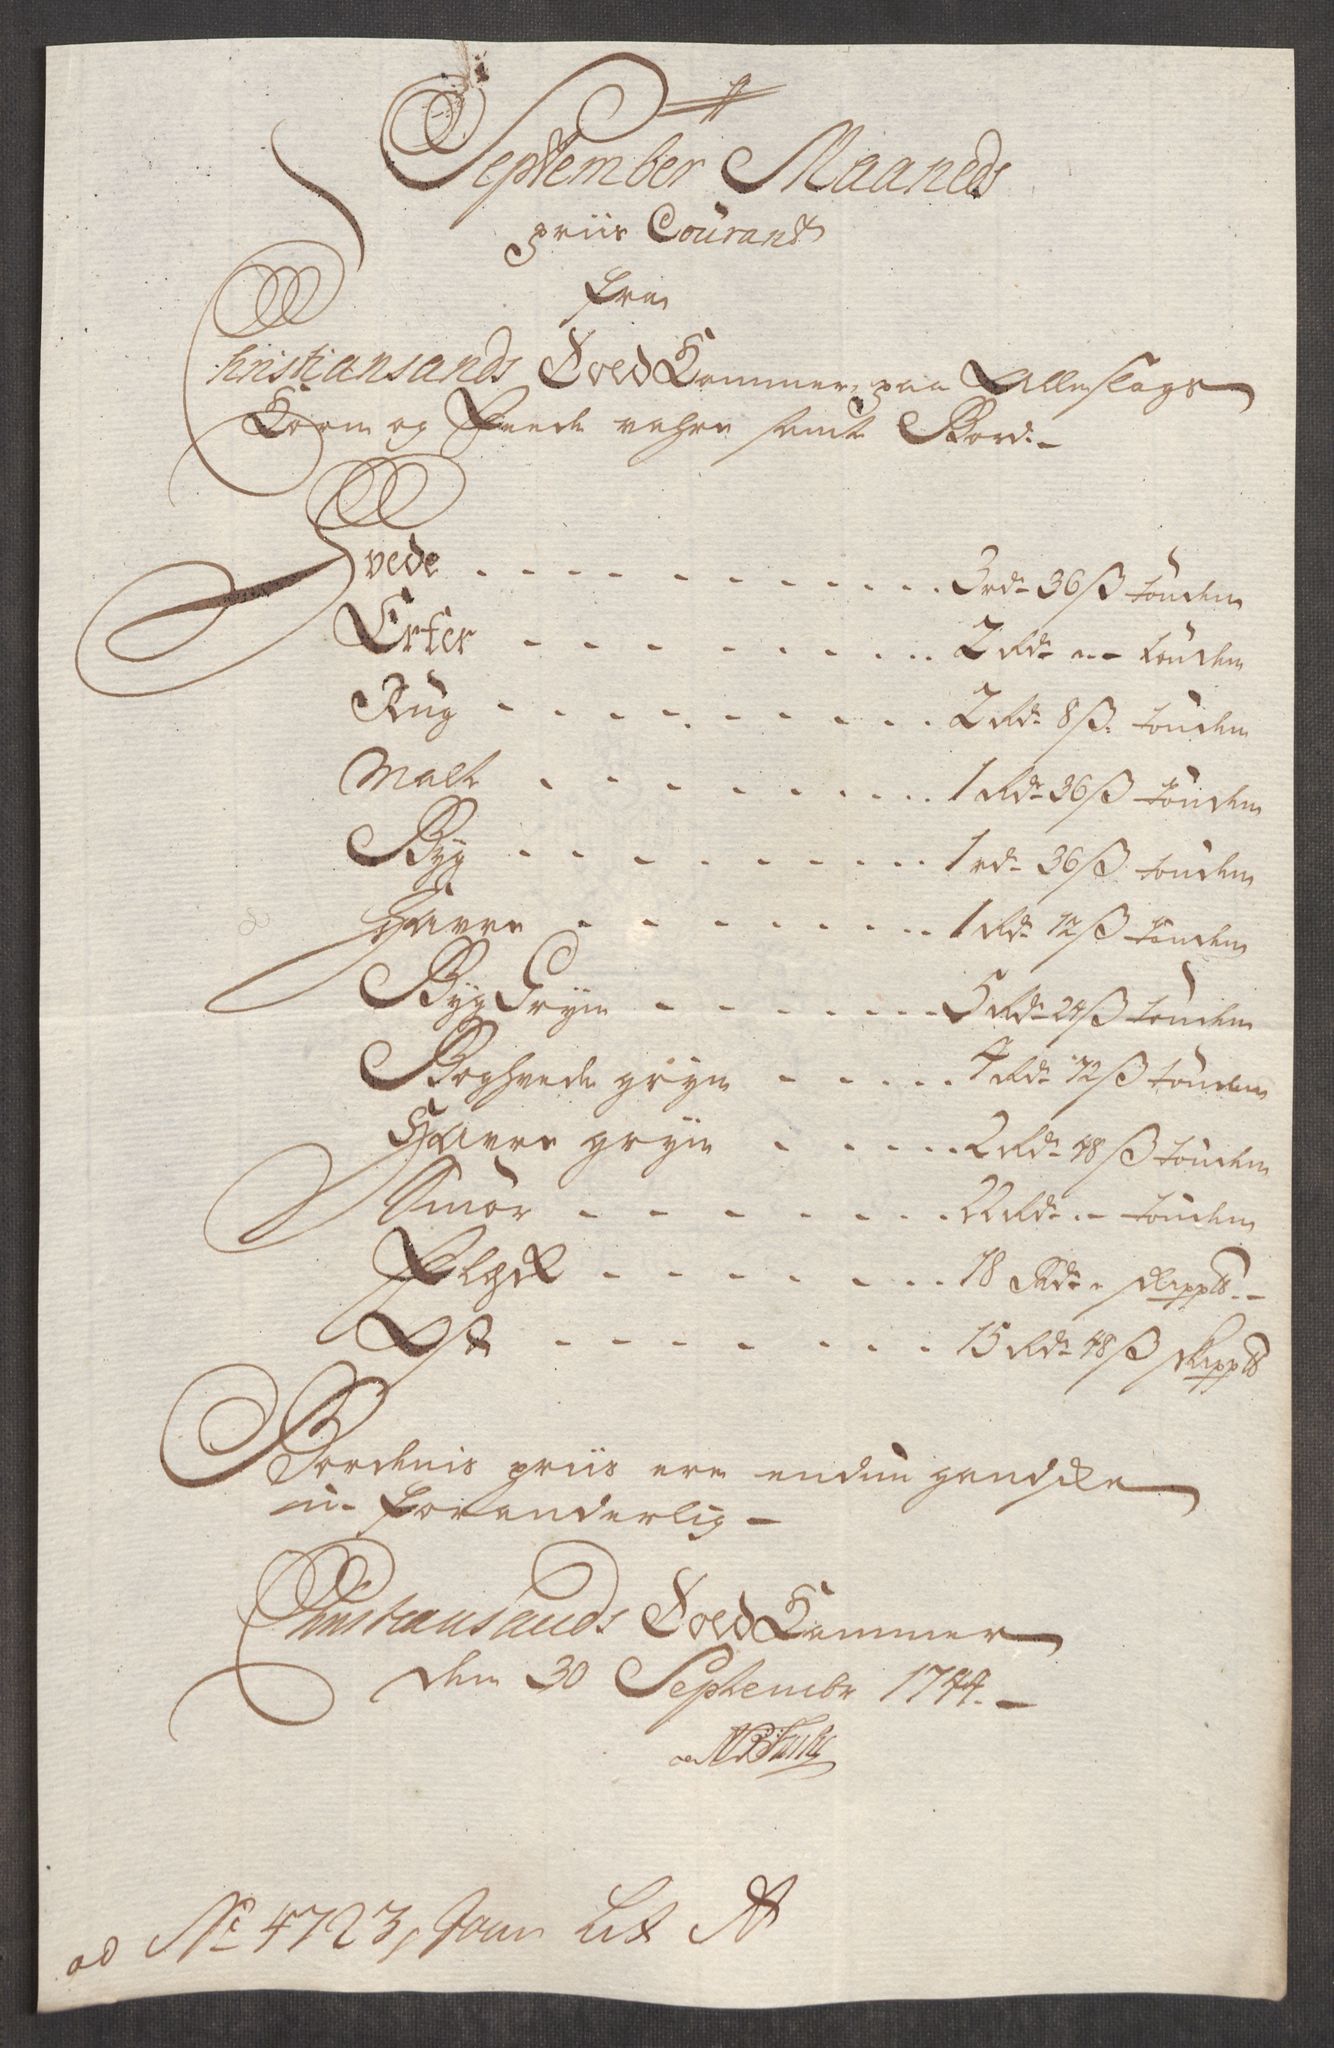 September Maaneds
priis Courant
fra
Christiansands Told Kammer, paa Alle slags
Korn og Feede vahre samt Bord.
Hvede - - - - - - - - - - - 3 rd 36 ß tönden
Erter - - - - - - - - - 2 Rd - - tönden
Rug - - - - - - - - - 2 Rd 8 ß. tönden
Malt - - - - - - - - - 1 Rd 36 ß tönden
Byg - - - - - - - - - 1 rd 36 ß tönden
Havre - - - - - - - - - 1 Rd 12 ß tönden
Byg Gryn - - - - - - - 5 Rd 24 ß tönden
Boghvede gryn - - - - - 4 Rd 72 ß tönden
Havre gryn - - - - - 2 Rd 48 ß tönden
Smör - - - - - - - - 22 Rd - - tönden
Flesk - - - - - - - - 18 Rd - skipp℔ -
Ost - - - - - - - - 15 Rd 48 ß skipp℔
Bordenis priis ere endnu gandske
u- foranderlig -
Christiansands Told Kammer
den 30 Septembr 1744. -
ad No 4723, Jour Lit A